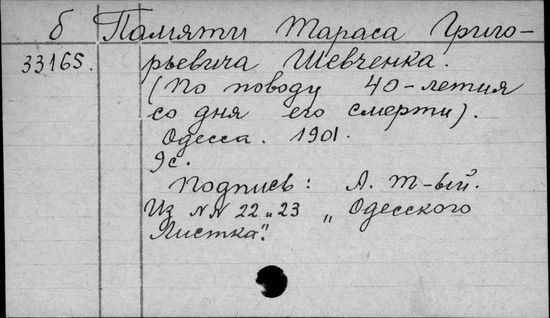 б Памяти Тараса Григо-
33165. рьевича Шевченка.
(По поводу 40-летия
со дня его смерти).
Одесса. 1901.
9с.
Подпись: А. Т-ый.
Из NN 22 и 23 „Одесского
Листка".